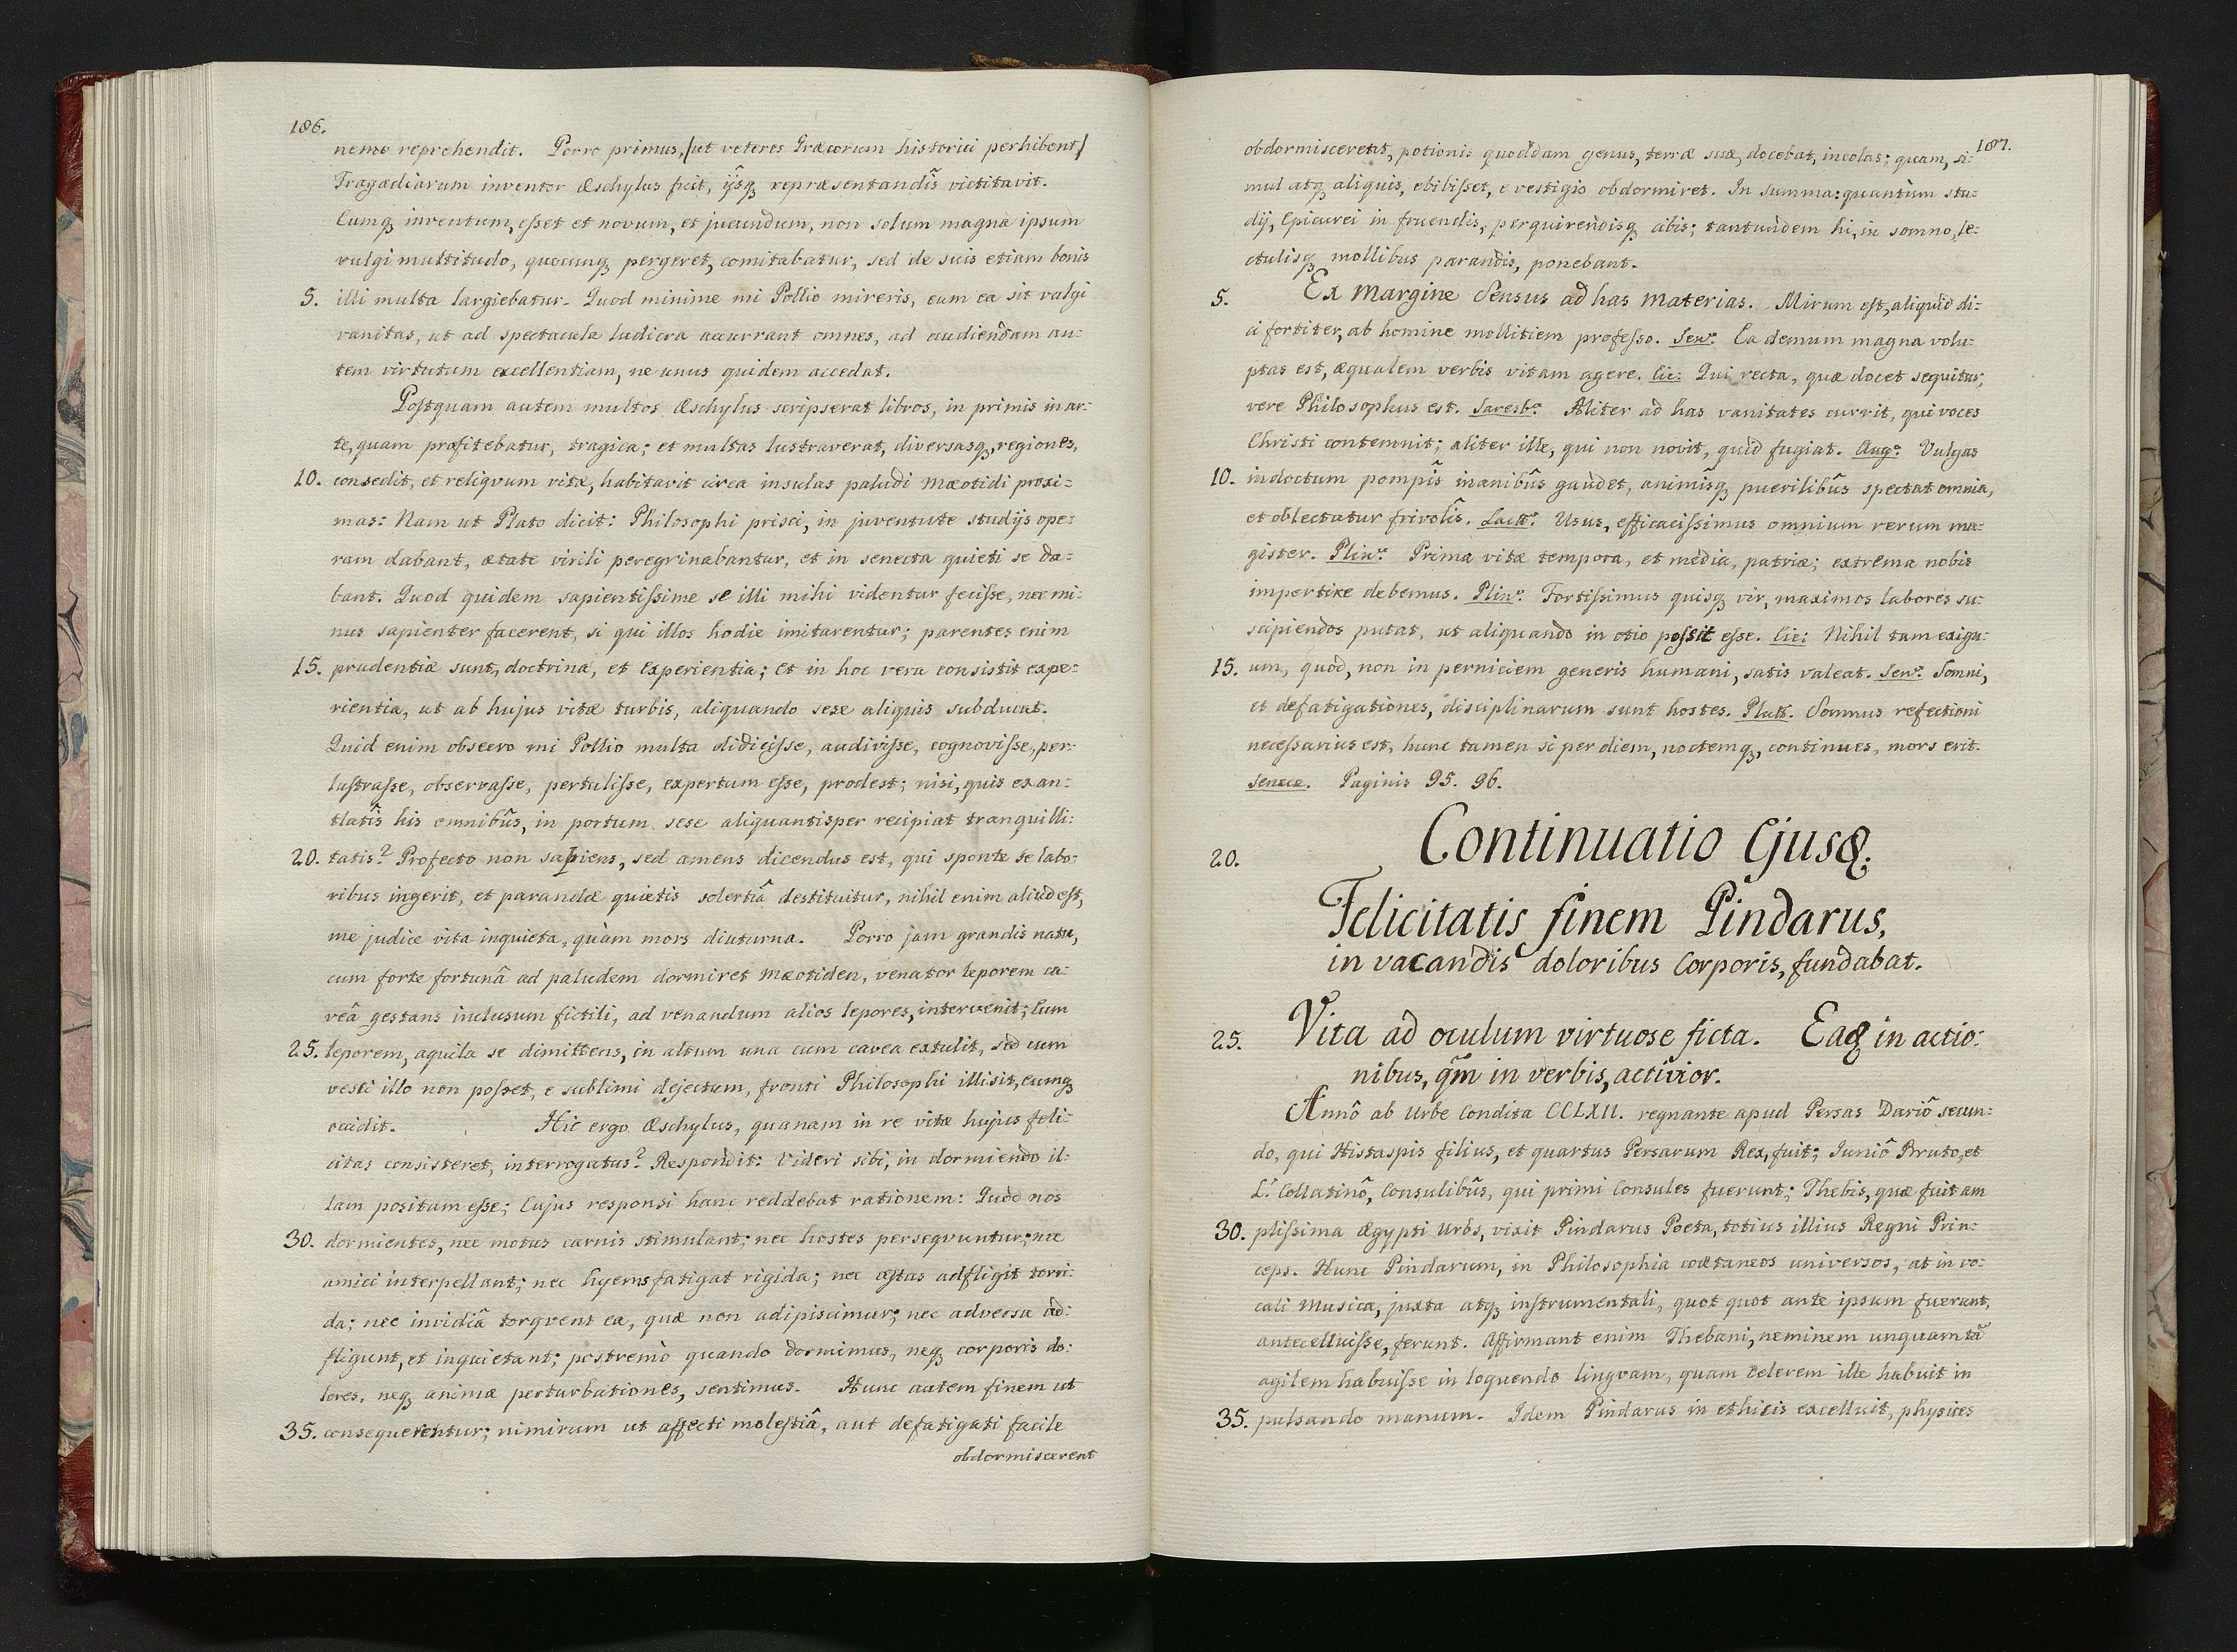 186.
nemo reprehendit. Porro primus, /ut veteres Græcorum historici perhibent/
Tragædiarum inventor Æschylus fuit, ijsq₃ repræsentandîs victitavit.
Cumq₃ inventum, esset et novum, et jucundum, non solum magna ipsum
vulgi multitudo, quocunq₃ pergeret, comitabatur, sed de suis etiam bonis
5. illi multa largiebatur. Quod minime mi Pollio mireris, cum ea sit vulgi
vanitas, ut ad spectacula ludicra accurrant omnes, ad audiendam au:
tem virtutum excellentiam, ne unus quidem accedat.
Postquam autem multos Æschylus scripserat libros, in primis in ar:
te, quam profitebatur, tragica; et multas lustraverat, diversasq₃, regiones,
10. consedit, et reliqvum vitæ, habitavit circa insulas paludi Mæotidi proxi:
mas: Nam ut Plato dicit: Philosophi prisci, in juventute studijs ope:
ram dabant, ætate virili peregrinabantur, et in senecta quieti se da:
bant. Quod quidem sapientissime se illi mihi videntur fecisse, nec mi:
nus sapienter facerent, si qui illos hodie imitarentur; parentes enim
15. prudentiæ sunt, doctrina, et experientia; et in hoc vera consistit expe:
rientia, ut ab hujus vitæ turbis, aliquando sese aliquis subducat.
Quid enim obsecro mi Pollio multa didicisse, audivisse, cognovisse, per:
lustrasse, observasse, pertulisse, expertum esse, prodest; nisi, quis exan:
tlatîs his omnibûs, in portum sese aliquantisper recipiat tranquilli:
20. tatis? Profecto non sapiens, sed amens dicendus est, qui sponte se labo:
ribus ingerit, et parandæ quietis solertiâ destituitur, nihil enim aliud est,
me judice vita inquieta, quàm mors diuturna. Porro jam grandis natu,
cum forte fortunâ ad paludem dormiret Mæotiden, venator leporem ca:
veâ gestans inclusum fictili, ad venandum alios lepores, intervenit; Cum
25. leporem, aquila se dimittens, in altum una cum cavea extulit, sed cum
vesci illo non posset, e sublimi dejectum, fronti Philosophi illisit, eumq₃
occidit. Hic ergo Æschylus, quanam in re vitæ hujus feli:
citas consisteret, interrogatus? Respondit: Videri sibi, in dormiendo il:
lam positam esse; Cujus responsi hanc reddebat rationem: Quòd nos
30. dormientes, nec motus carnis stimulant; nec hostes perseqvuntur; nec
amici interpellant; nec hyems fatigat rigida; nec æstas adfligit torri:
da; nec invidiâ torqvent ea, quæ non adipiscimur; nec adversa ad:
fligunt, et inquietant; postremò quando dormimus, neq₃ corporis do:
lores, neq₃ animæ perturbationes, sentimus. Hunc autem finem ut
35. consequerentur; nimirum ut affecti molestiâ, aut defatigati facile
obdormiscerent
187.
obdormiscerent, potionis quoddam genus, terræ suæ, docebat, incolas; quam, si:
mul atq₃ aliquis, ebibisset, e vestigio obdormiret. In summa: quantùm stu:
dij, Epicurei in fruendis, perquirendisq₃ cibis; tantundem hi, in somno, le:
ctulisq₃ mollibus parandis, ponebant.
5. Ex Margine Sensus ad has Materias. Mirum est, aliquid di:
ci fortiter, ab homine mollitiem professo. Senᵃ. Ea demum magna volu:
ptas est, æqualem verbis vitam agere. Cic: Qui recta, quæ docet sequitur,
vere Philosophus est. Saresbᵉ. Aliter ad has vanitates currit, qui voces
Christi contemnit; aliter ille, qui non novit, quid fugiat. Augᵉ. Vulgus
10. indoctum pompîs inanibûs gaudet, animîsq₃ puerilibûs spectat omnia,
et oblectatur frivolîs. Lactᵉ. Usus, efficacissimus omnium rerum ma:
gister. Plinᵘˢ. Prima vitæ tempora, et media, patriæ; extrema nobis
impertire debemus. Plinᵘ. Fortissimus quisq₃ vir, maximos labores su:
scipiendos putat, ut aliquando in otio possit esse. Cic: Nihil tam exigu:
15. um, quod, non in perniciem generis humani, satis valeat. Senᵃ. Somni,
et defatigationes, disciplinarum sunt hostes. Plutt. Somnus refectioni
necessarius est, hunc tamen si per diem, noctemq₃, continues, mors erit.
Senece. Paginis 95. 96.
20. Continuatio Ejusq₃:
Felicitatis finem Pindarus,
in vacandis doloribus Corporis, fundabat.
25. Vita ad oculum virtuose ficta. Eaq₃ in actio:
nibus, qm̃ in verbis, activior.
Annô ab Urbe Condita CCLXII. regnante apud Persas Dariô secun:
do, qui Histaspis filius, et quartus Persarum Rex, fuit; Juniô Bruto, et
L. Collatinô, Consulibûs, qui primi Consules fuerunt; Thebis, quæ fuit am
30. plissima Ægypti Urbs, vixit Pindarus Poeta, totius illius Regni Prin:
ceps. Hunc Pindarum, in Philosophia coætaneos universos, at in vo:
cali Musica, juxta atq₃ instrumentali, quot quot ante ipsum fuerunt,
antecelluisse, ferunt. Affirmant enim Thebani, neminem unquam tã
agilem habuisse in loquendo lingvam, quam celerem ille habuit in
35. pulsando manum. Idem Pindarus in ethicis excelluit, physices